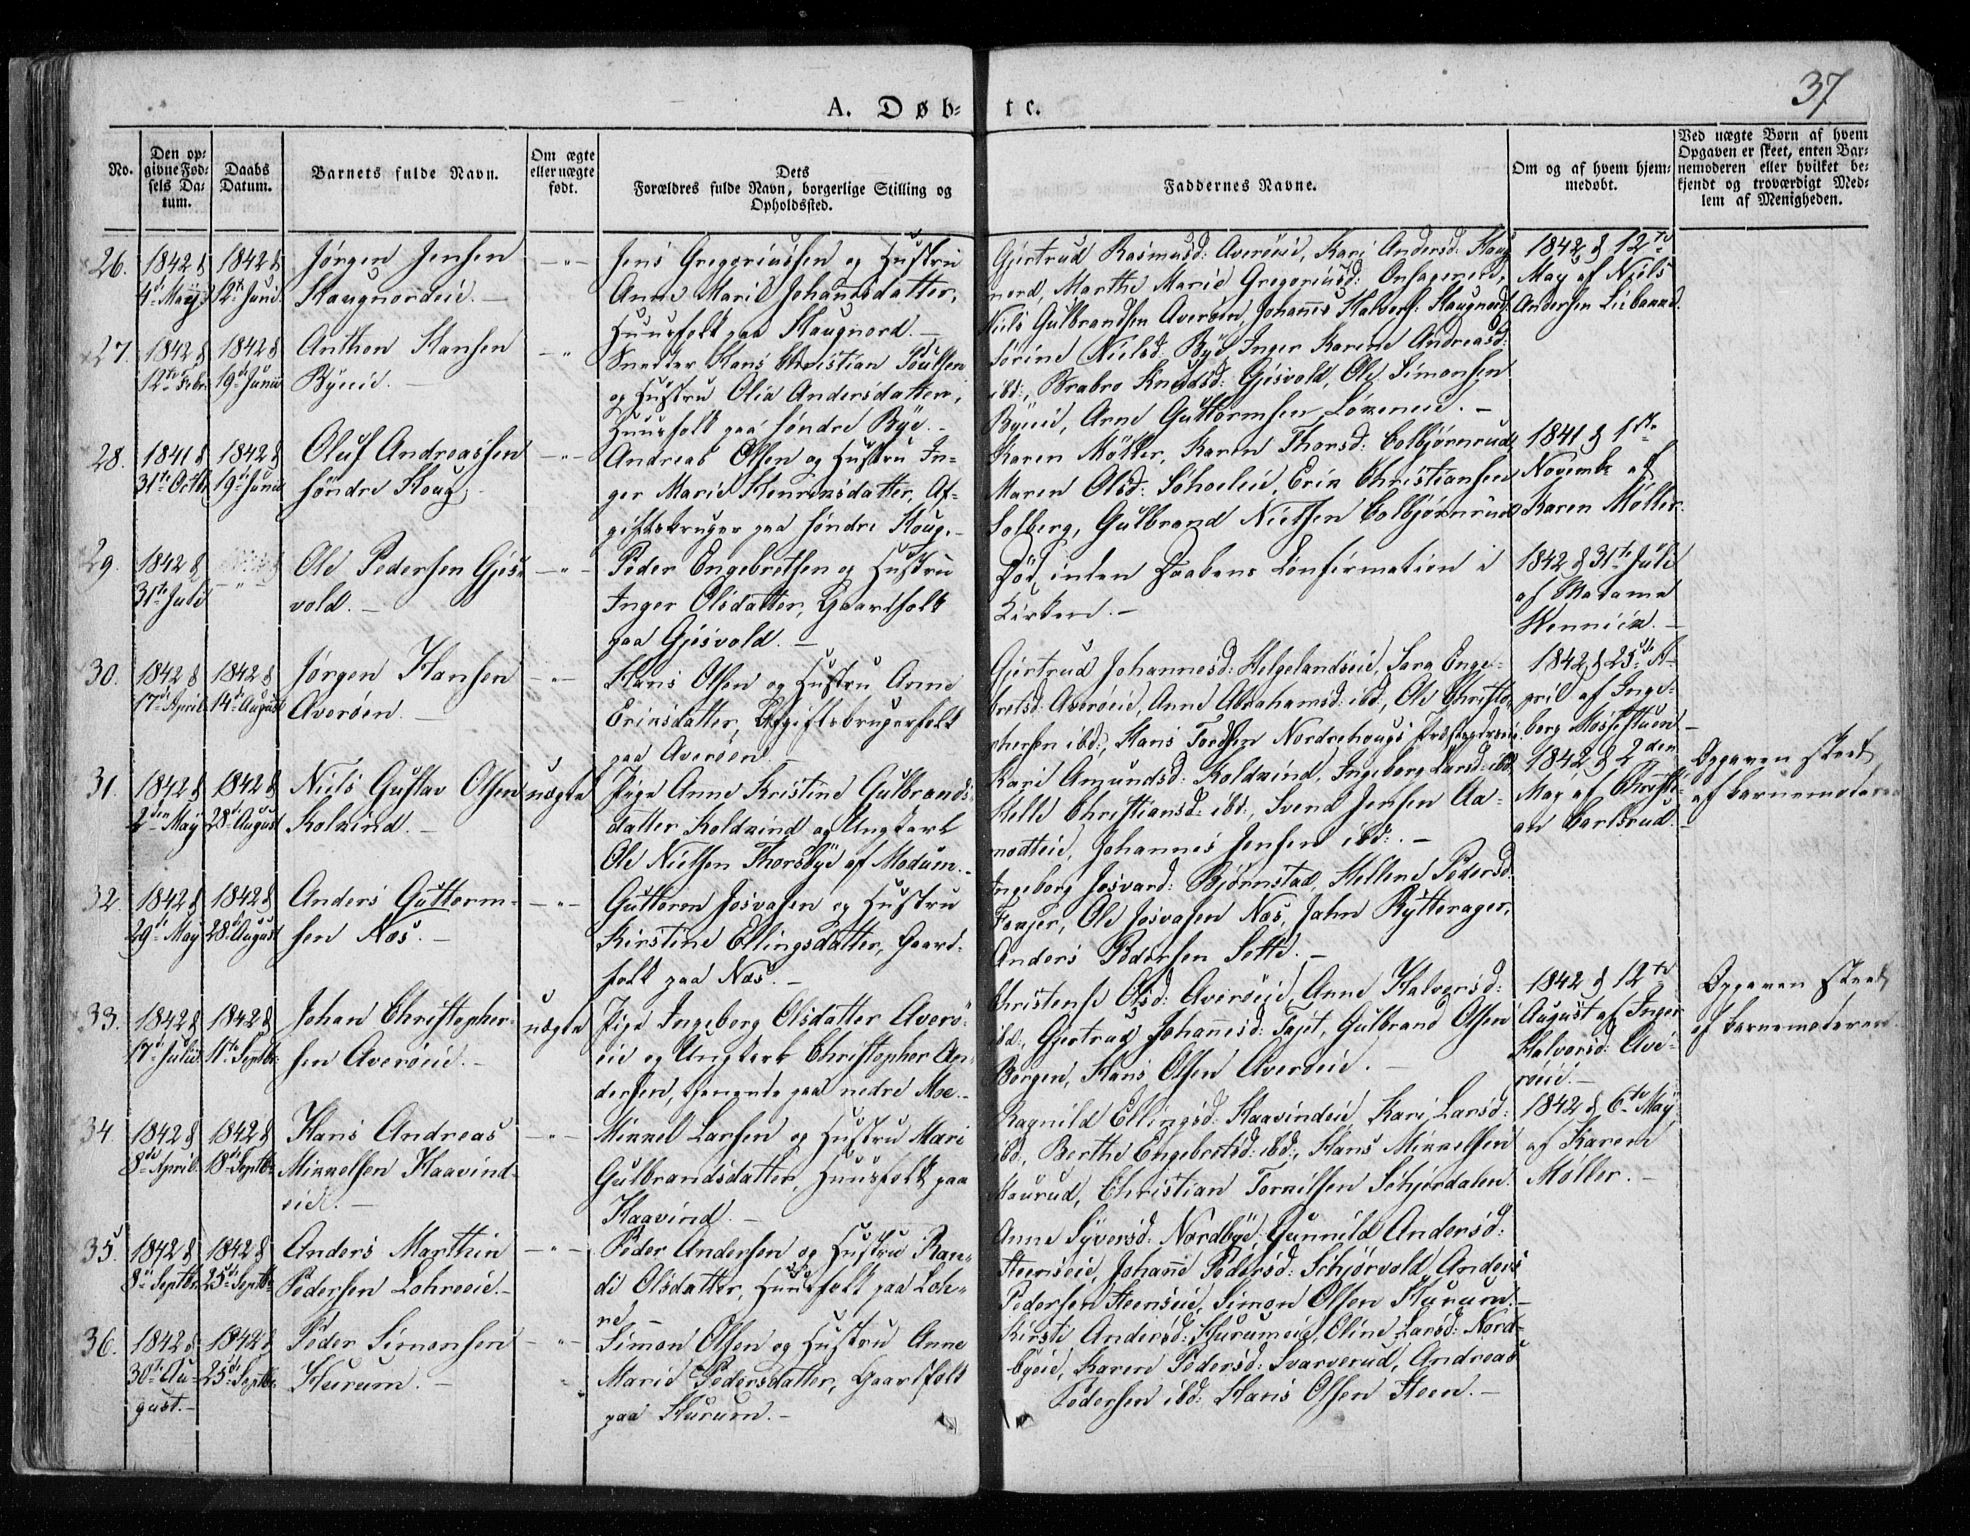 37
A. Døb- te.
No.
Den op-
givne Fød-
sels Da-
tum.
Daabs
Datum.
Barnets fulde Navn.
Om ægte
eller uægte
født.
Dets
Forældres fulde Navn, borgerlige Stilling og
Opholdssted.
Faddernes Navne.
Om og af hvem hjem-
medøbt.
Ved uægte Børn af hvem
Opgaven er skeet, enten Bar-
nemoderen eller hvilket be-
kjendt og troværdigt Med-
lem af Menigheden.
26.
1842 d
4de May
1842 d
12te Juni
Jørgen Jensen
Haugnordeie.-
-"-
Jens Gregoriussen og Hustru
Anne Marie Johannesdatter,
Huusfolk paa Haugnord.-
Gjertrud Rasmusd: Averøeie, Kari Andersd: Haug
nord, Marthe Marie Gregoriusd:
Niels Gulbrandsen Averøen, Johannes Halvors: Haugnord
1842 d 12te
May af Niels
Andersen
27.
1842 d
12te Febr.
1842 d
19de Junii
Anthon Hansen
Byeeie.-
-"-
Snedker Hans Christian Poulsen
og Hustru Olia Andersdatter,
Huusfolk paa søndre Bye.-
Sørine Nielsd: Bye, Inger Karine Andreasd:
ibd:, Brabro Knudsd: Gjesvold, Ole Simonsen
Byeeie, Arne Guttormsen Loreneie.-
28.
1841 d
31te Octb
1842 d
19de Junii
Oluf Andreassen
søndre Houg.
-"-
Andreas Olsen og Hustru In-
ger Marie Henriksdatter, Af-
giftsbruger paa søndre Houg.-
Karen Møller, Karen Thorsd: Colbjørnrud
Maren Olsd: Erik Christiansen
Solberg, Gulbrand Nielsen Colbjørnrud
1841 d 1ste
Novembr af
Karen Møller.
29.
1842 d
31te Juli
-"-
Ole Pedersen Gjes-
vold.-
-"-
Peder Engebretsen og Hustru
Inger Olsdatter, Gaardfolk
paa Gjesvold.-
Død inden Daabens Confirmation i
Kirken.-
1842 d 31te Juli
af Madame
30.
1842 d
17de April
1842 d
14de August
Jørgen Hansen
Averøen.-
-"-
Hans Olsen og Hustru Anne
Eriksdatter, Afgiftsbrugerfolk
paa Averøen.-
Gjertrud Johannesd: Helgelandseie, Sara Enge-
bretsd: Averøeie, Anne Abrahamsd: ibd:, Ole Christo-
phersen ibd:, Hans Tordsen Nordrehougs
1842 d 25de A-
pril af Inge-
borg Mossestuen.
31.
1842 d
2den May
1842 d
28de August
Niels Gustav Olsen
Kolkind.-
uægte
Pige Anne Kristine Gulbrands-
datter Koldkind og Ungkarl
Ole Nielsen Thorsbye af Modum.-
Kari Amundsd: Koldkind, Ingeborg Larsd: ibd
Helle Christiansd: ibd:, Svend Jensen Aa-
modteie, Johannes Jensen ibd:.-
1842 d 2den
May af Christi-
an Carlsrud.-
Opgaven skeet
af Barnemoderen
32.
1842 d
29de May
1842 d
28de August
Anders Guttorm-
sen Næs.-
-"-
Guttorm Josvasen og Hustru
Kirstine Ellingsdatter, Gaard-
folk paa Næs.-
Ingeborg Josvasd: Bjørnstad, Hellene Pedersd
Ole Josvasen Næs, John Rytterager,
Anders Pedersen Sette.-
33.
1842 d
17de Julii
1842 d
11te Septbr
Johan Christopher-
sen Averøeie.-
uægte
Pige Ingeborg Olsdatter Averø-
eie og Ungkarl Christopher An-
dersen, tjenende paa nedre Moe.-
Christense Olsd: Averøeie, Anne Halvorsd:
ibd:, Gjertrud Johannesd: Gulbrand Olsen
Borgen, Hans Olsen Averøeie.-
1842 d 12te
August af Inger
Halvorsd: Ave-
røeie.-
Opgaven skeet
af Barnemoderen.
34.
1842 d
8de April
1842 d
18de Septbr
Hans Andreas
Mikkelsen Haavind-
eie.-
-"-
Mikkel Larsen og Hustru Mari
Gulbrandsdatter, Huusfolk paa
Haavind.-
Ragnild Ellingsd: Haavindeie, Kari Larsd:
ibd:, Berthe Engebretsd: ibd:, Hans Mikkelsen
Maurud, Christian Torkilsen Schjørdalen.
1842 d 6te May
af Karen
Møller.-
35.
1842 d
8de Septbr
1842 d
25de Septbr
Anders Marthin
Pedersen Lohreeie.-
-"-
Peder Andersen og Hustru Ran-
di Olsdatter, Huusfolk paa Loh-
re.-
Anne Syversd: Nordbye, Gunnild Andersd:
Steenseie, Johanne Pedersd: Schjørvold, Anders
Pedersen Steenseie, Simon Olsen Hurum.-
36.
1842 d
30te Au-
gust.-
1842 d
25de Septbr
Peder Simonsen
Hurum.-
-"-
Simon Olsen og Hustru Anne
Marie Pedersdatter, Gaardfolk
paa Hurum.-
Kirsti Andersd: Hurumeie, Oline Larsd: Nord-
byeie, Karen Pedersd: Svarverud, Andreas
Pedersen ibd: Hans Olsen Steen.-